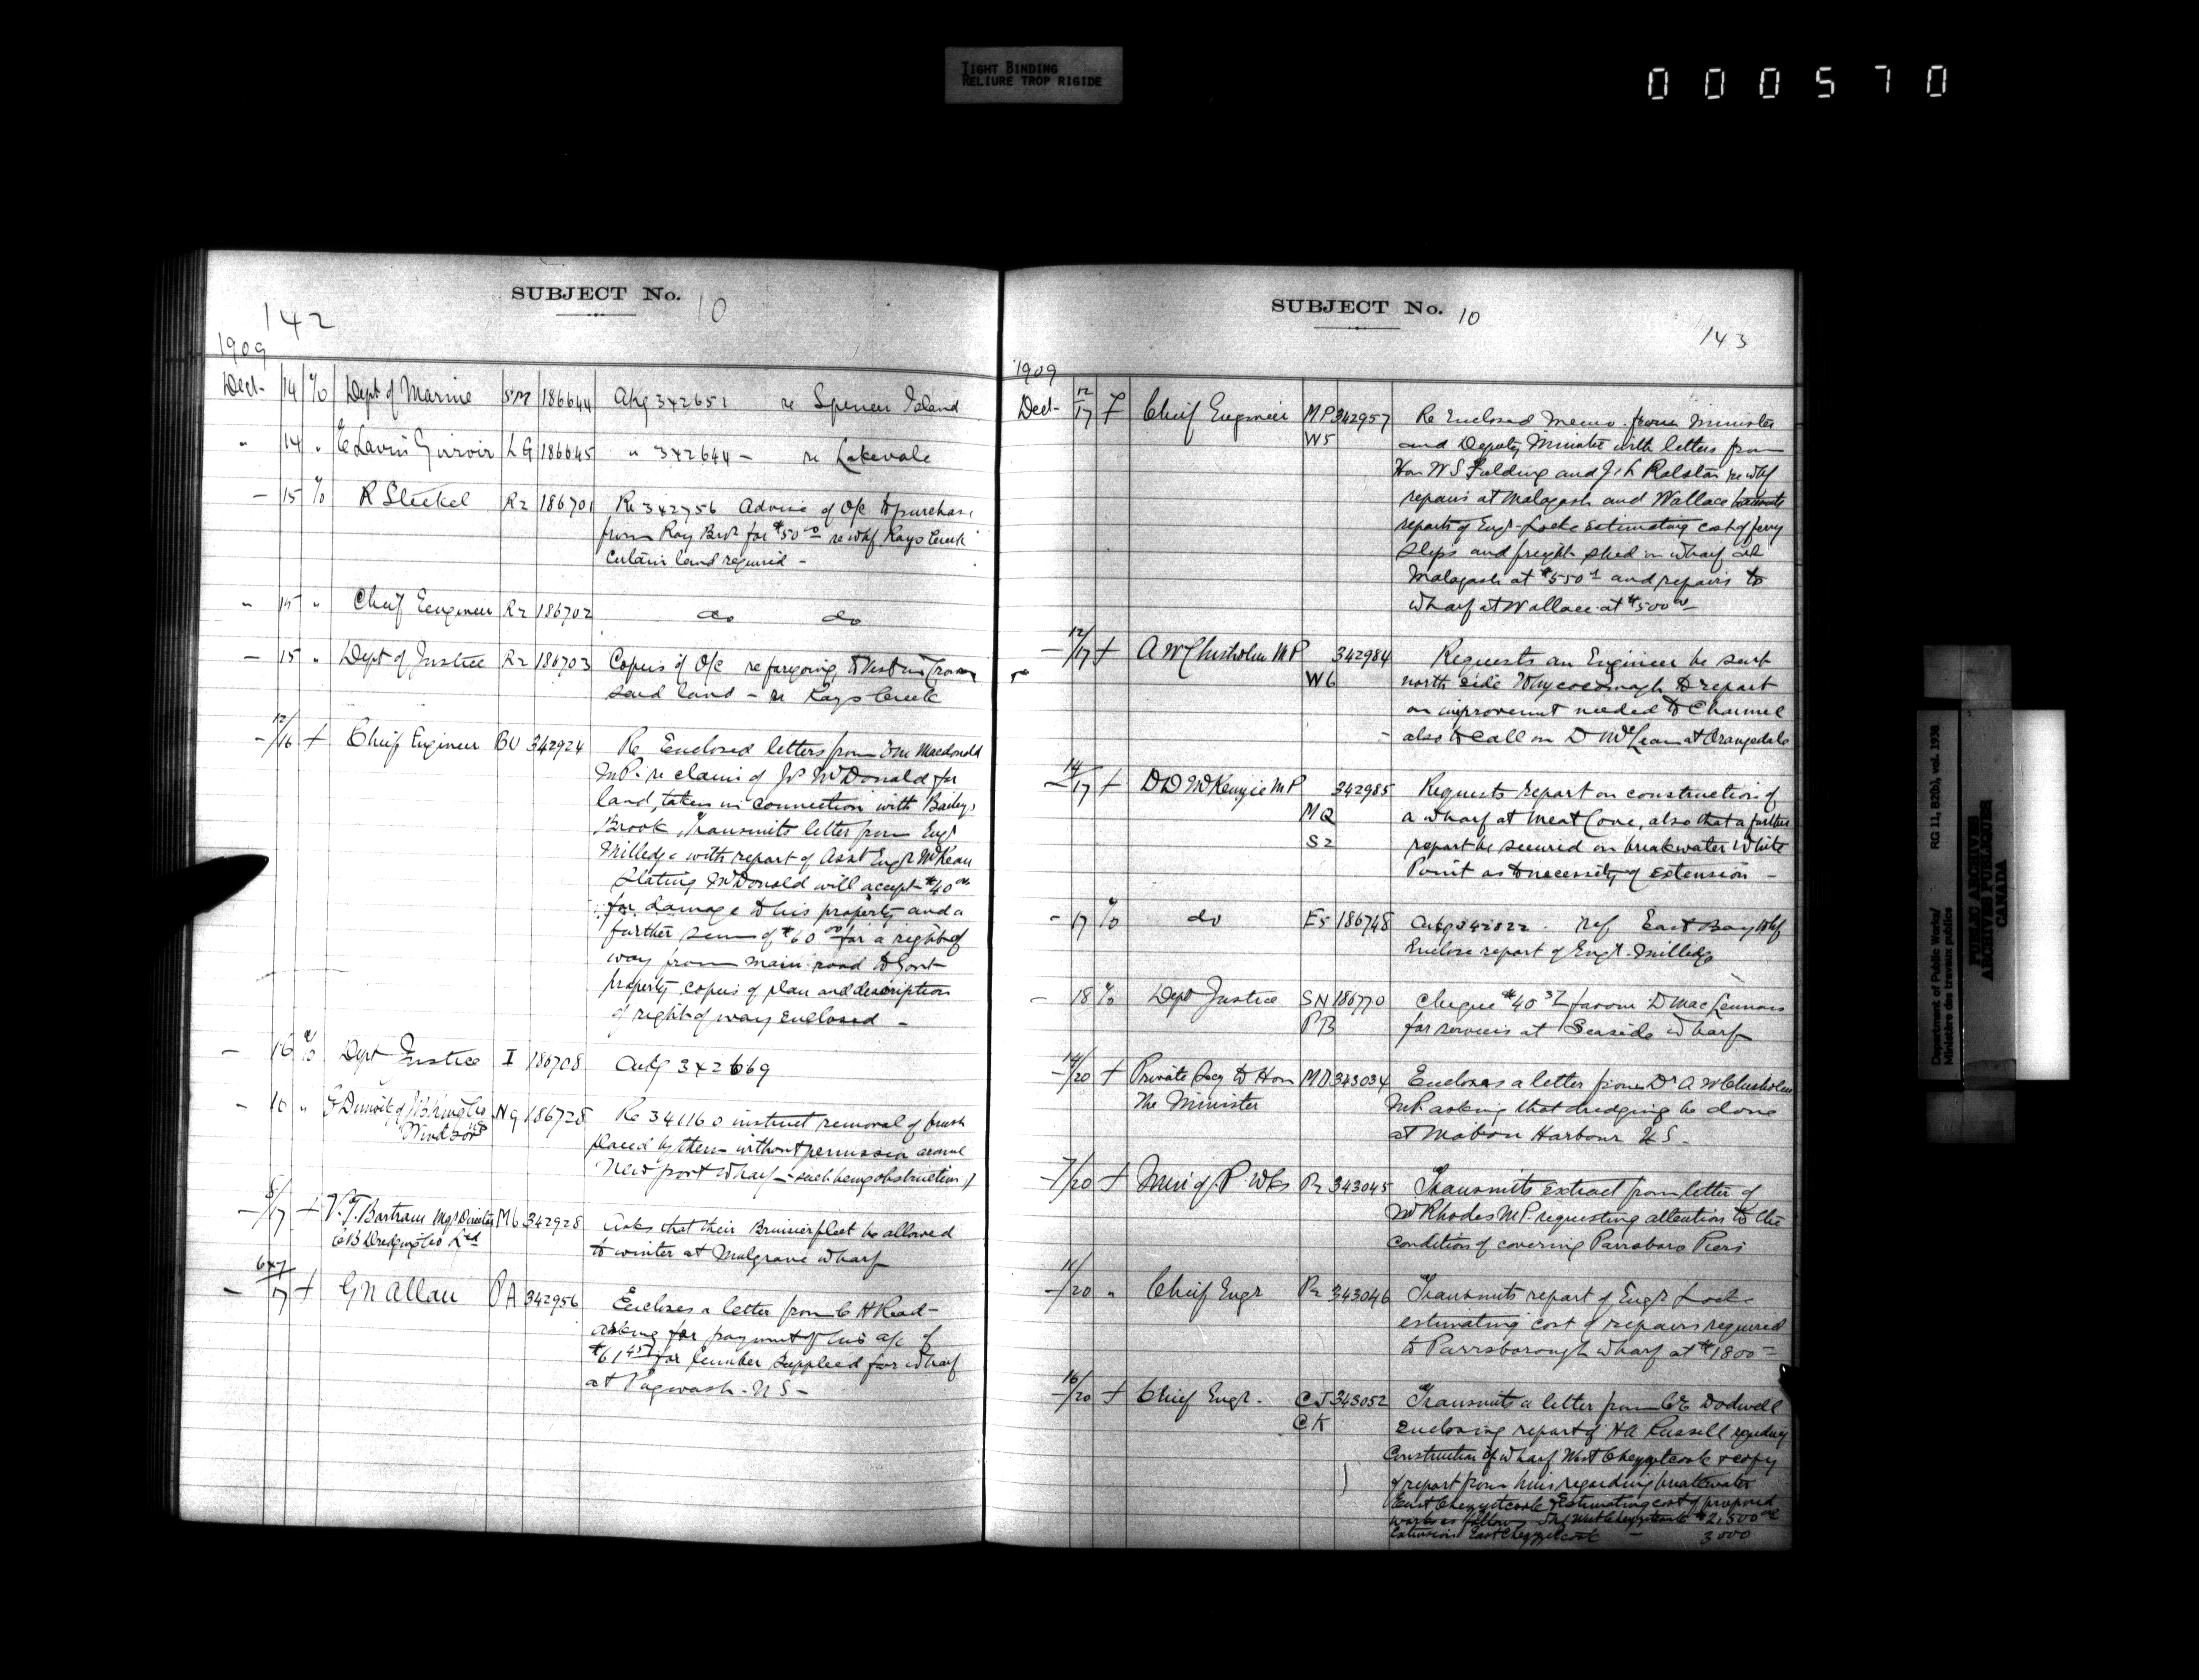 TIGHT BINDING
RELIURE TROP RIGIDE
000570
SUBJECT No. 10
142
1909
Dect- 14 % Dept of Marine SM 186644 Akg 342651 re Spencer Island
" 14 " E Lavin Girroir LG 186645 " 342644 - re Lakevale
- 15 % R Steckel R2 186701 Re 342756 Advise of O/C to purchase
from Ray Bros for $50 00 re whf Rays Creek
certain land required -
" 15 " Chief Engineer R2 186702 do do
- 15 " Dept of Justice R2 186703 Copies of O/C re forgoing, to vest in Crown
said land - re Rays Creek
- 12/16 + Chief Engineer BU 342924 Re Enclosed letters from Macdonald
M.P. re claim of McDonald for
land, taken in connection with Baileys
Brook, Transmits letter from Engr
Milledge with report of Asst Engr McKean
Stating McDonald will accept $40 00
for damage to his property and a
further sum of $60 00 for a right of
way from main road to Govt
property, copies of plan and description
of right of way enclosed -
- 16 % Dept Justice I 186708 Ackg 342669
- 16 " Dimock of Co NG 186728 Re 341160 instruct removal of brush
Windsor NS
placed by them without permission around
Newport Wharf - such being obstruction
- 8/17 + V.T. Bartram Mgr Director M6 342928 Asks that their fleet be allowed
CB Dredging Co Ltd
to winter at Mulgrave wharf
- 6+7/17 + G N Allan PA 342956 Encloses a letter from C H Read-
asking for payment of his a/c of
$61 45 for lumber supplied for wharf
at Pugwash - N S -
SUBJECT No. 10
143
1909
Dect- 12/17 + Chief Engineer MP 342957 Re Enclosed memo. from Minister
W5 and Deputy Minister with letters from
Hon W S Fielding and J. L Ralston re whf
repairs at Malagash and Wallace
reports of Engr Locke estimating cost of ferry
slips and freight shed on wharf at
Malagash at $550 and repairs to
wharf at Wallace at $500 00
- 12/17 + A W Chisholm MP 342984 Requests an Engineer be sent
W6 north side Whycocomagh to report
on improvement needed to Channel
also to call on D McLean at Orangedale
- 14/17 + D D McKenzie MP 342985 Requests report on construction of
MQ a wharf at Meat Cove, also that a further
S2 report be secured on breakwater White
Point as to necessity of extension -
- 17 % do E5 186748 Ackg 342822. ref East Bay Whf
Enclose report of Engr Milledge
- 18 % Dept Justice SN 186770 Cheque $40 37 favour D MacLennan
PB for services at Seaside wharf
- 14/20 + Private Secy to Hon MD 343034 Encloses a letter from Dr A W Chisholm
The Minister MP. asking that dredging be done
at Mabou Harbour N S -
- 7/20 + Min of P. Wks P2 343045 Transmits extract from letter of
Mr Rhodes MP. requesting attention to the
condition of covering Parrsboro Piers
- 11/20 " Chief Engr P2 343046 Transmits report of Engr Locke
estimating cost of repairs required
to Parrsborough wharf at $1800
- 16/20 + Chief Engr. CJ 343052 Transmits a letter from CE Dodwell
CK enclosing report of HA Russell regarding
Construction of wharf West Chezzetcook & copy
of report from him regarding breakwater
East Chezzetcook & Estimating cost of proposed
works as follows West Chezzetcook $2,500 00
Extension East Chezzetcook - 3000
Department of Public Works/ RG 11, B2(b), vol. 1938
Ministère des travaux publics
PUBLIC ARCHIVES
ARCHIVES PUBLIQUES
CANADA